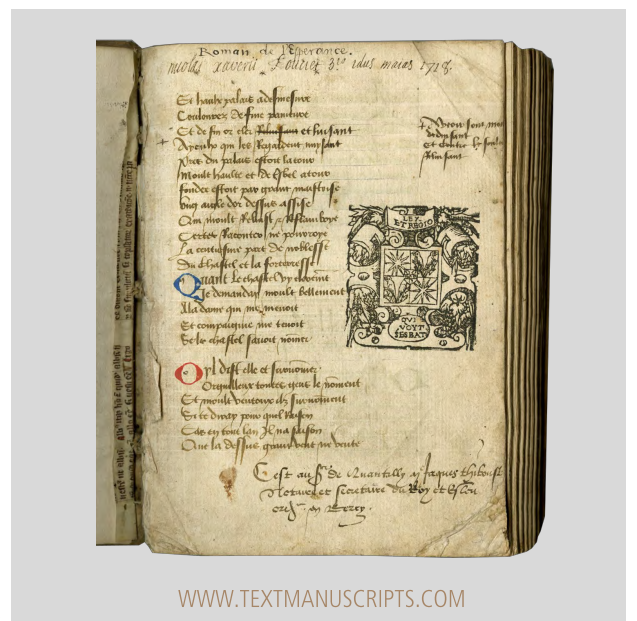 Roman de l'Esperance.
nicolas xaverii 3º idus maias 1718.
Et hault palais a desmesure
Coulourez de fine painture
Et de fin or cler Reluisant et luisant
+ A ceulx qui les Regardent nuysant
+ A ceulx sont
et contre le soleil
reluisant
Pres du palais estoit la tour
Moult haulte et de bel atour
fondee estoit par grant maistrise
Ung aigle d'or dessus assise
Qui moult Reluist et flamboye
Certes Raconter ne pourroye
La centiesme part de noblesse
Du chastel et la forteresse
LEX
ET REGIO
QUI
VOYT
SESBAT
Quant le chastel vy
Je demanday moult bellement
A la dame qui me menoit
Et compaignie me tenoit
Se le chastel savoit nommer
Oyl dist elle et surnommer
Orgueilleux toutes gens le nomment
Et moult venteux le surnomment
Si te diray pour quel Raison
Car en tout lan Il na saison
Que la dessus grant vent ne vente
C est au Sr de Quantilly Mr Jaques thiboust
Notaire et secretaire du Roy et Esleu
en Berry.
WWW.TEXTMANUSCRIPTS.COM